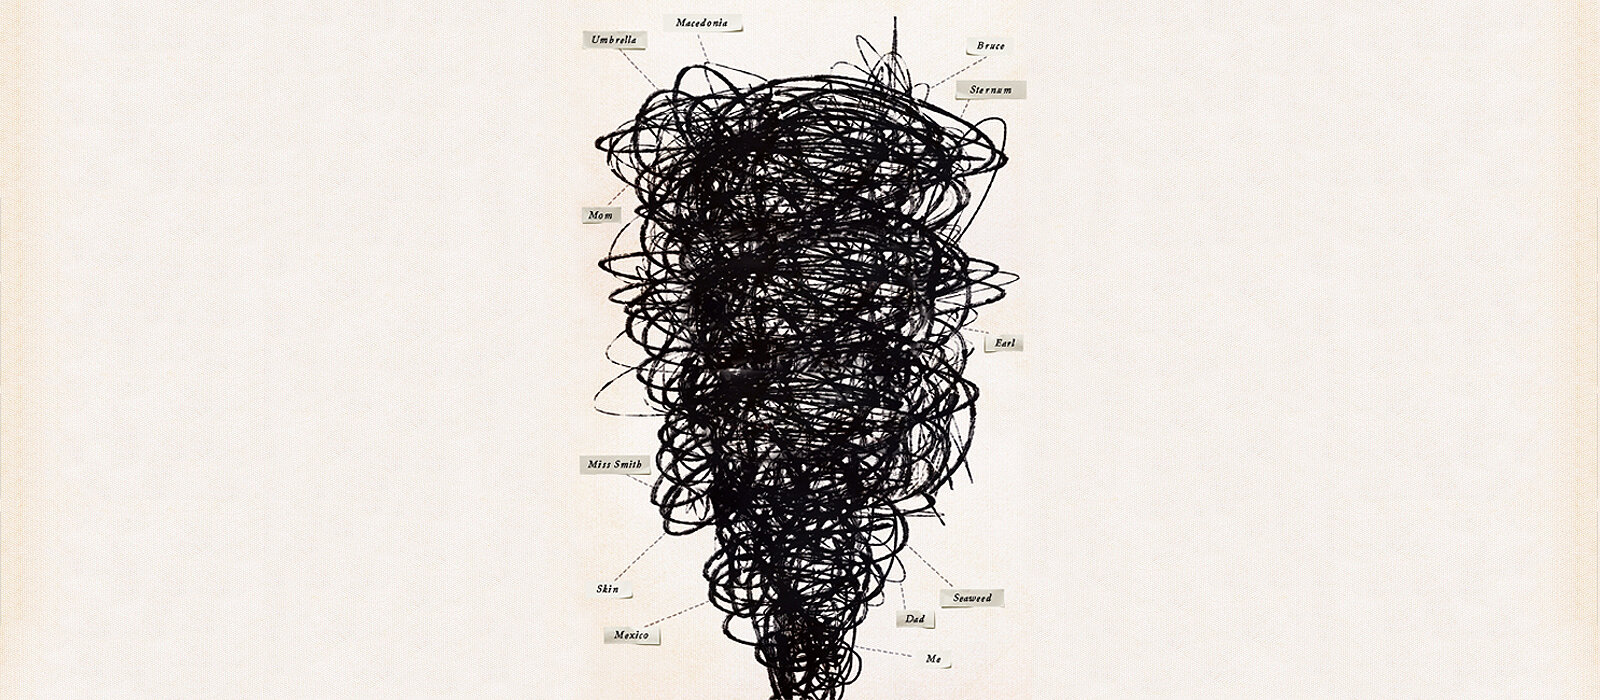 Macedonia
Umbrella
Bruce
Sternum
Mom
Earl
Miss Smith
Skin
Seaweed
Dad
Mexico
Me